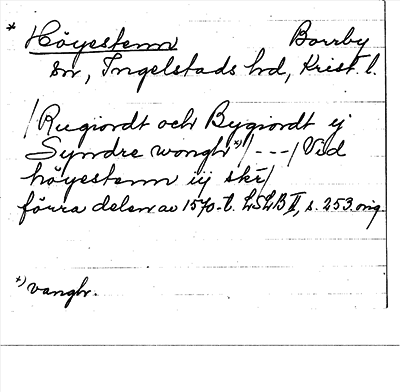 * Höyestenn Borrby
sn, Ingelstads hd, Krist. l.
/Rugiordt och Bygiordt ej
Syndre wongh*)/ --- / Ved
höyestenn iij skr/
förra delen av 1570-t. LSLB II, s. 253. orig.
*) vangh.